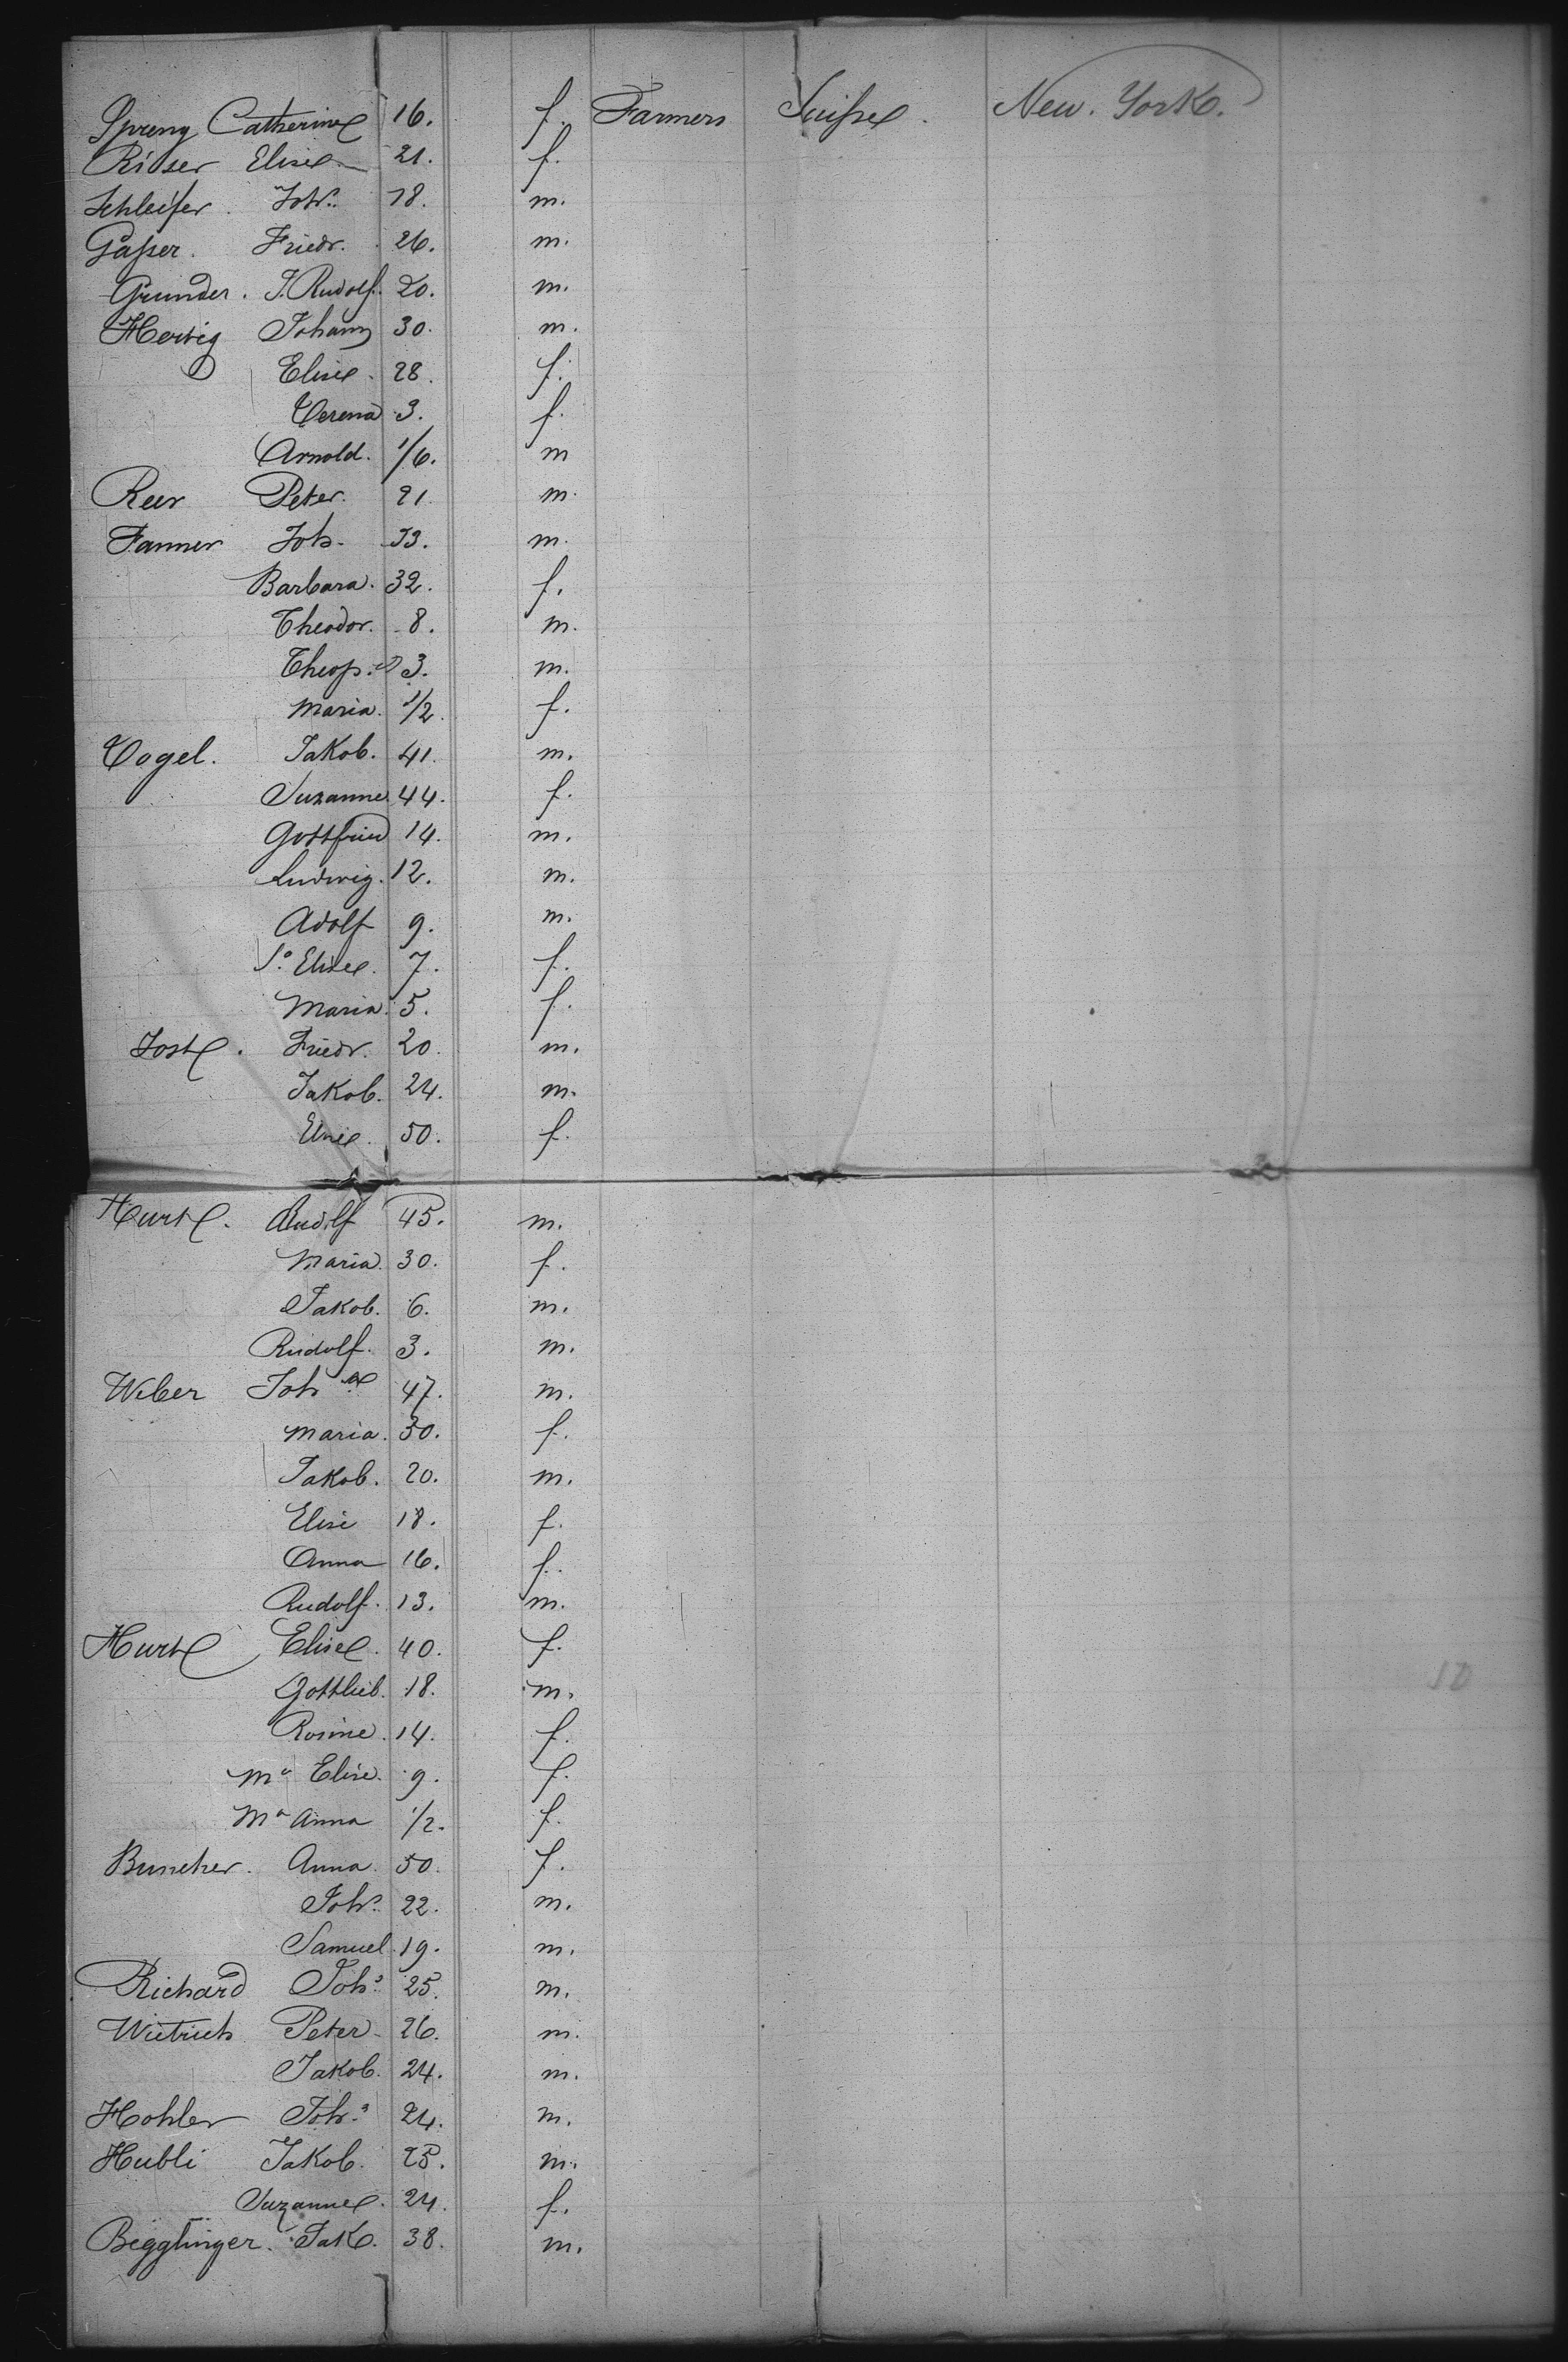 Spreng Catherine 16. f. Farmers Suisse. New. York.
Rieser Elise 21. f.
Schleifer. Johs. 18. m.
Gasser. Friedr. 26. m.
Grunder. J. Rudolf. 20. m.
Hertig Johann 30. m.
Elise. 28. f.
Verena 3. f.
Arnold. 1/6. m
Peter. 21. m.
Fanner Joh. 33. m.
Barbara. 32. f.
Theodor. 8. m.
Theop. 3. m.
Maria. 1/2. f.
Vogel. Jakob. 41. m.
Suzanne 44. f.
Gottfried 14. m.
Ludwig. 12. m.
Adolf 9. m.
Elise. 7. f.
Maria. 5. f.
Jost. Friedr. 20. m.
Jakob. 24. m.
Elise. 50. f.
Hurt. Rudolf 45. m.
Maria. 30. f.
Jakob. 6. m.
Rudolf. 3. m.
Weber Joh 47. m.
Maria. 30. f.
Jakob. 20. m.
Elise 18. f.
Anna 16. f.
Rudolf. 13. m.
Hurt Elise. 40. f.
Gottlieb. 18. m.
Rosine. 14. f.
Ma Elise. 9. f.
Ma Anna 1/2. f.
Buncher. Anna. 50. f.
Johs. 22. m.
Samuel. 19. m.
Richard Johs. 25. m.
Wütrich Peter 26. m.
Jakob. 24. m.
Hohler Johs. 24. m.
Hubli Jakob. 25. m.
Suzanne. 24. f.
Begglinger. Jak. 38. m.